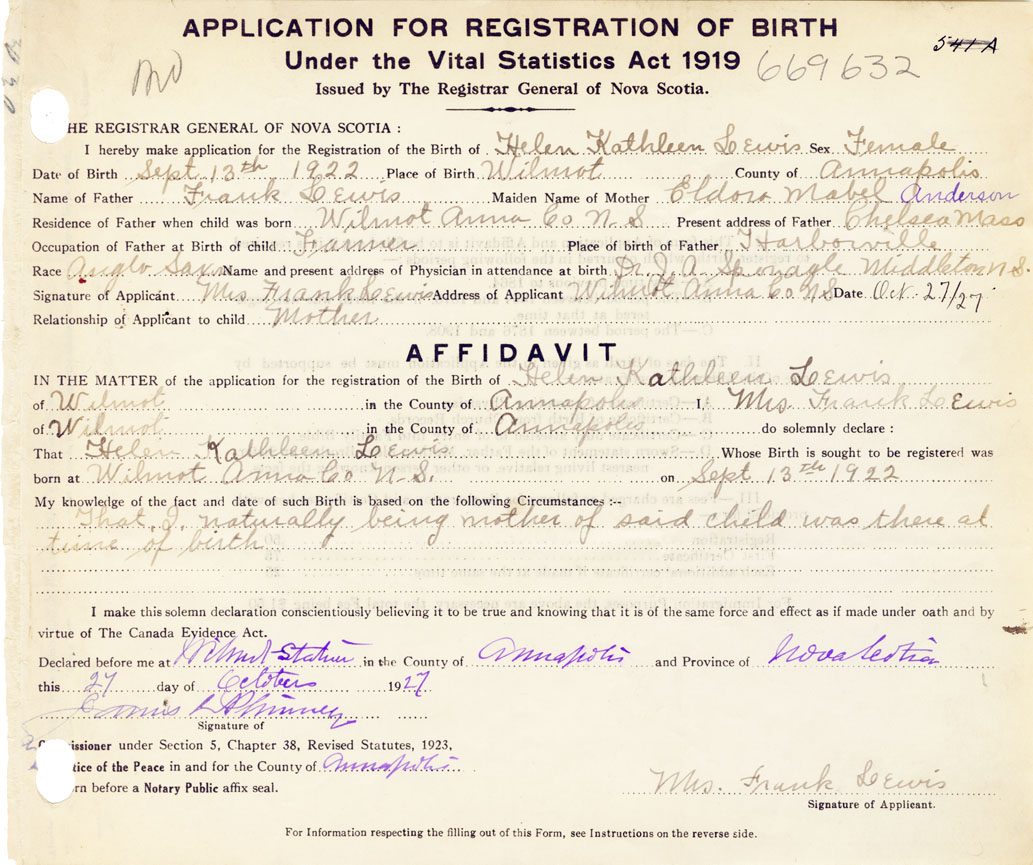 APPLICATION FOR REGISTRATION OF BIRTH
541A
Under the Vital Statistics Act 1919 669632
Issued by The Registrar General of Nova Scotia.
HE REGISTRAR GENERAL OF NOVA SCOTIA :
I hereby make application for the Registration of the Birth of Helen Kathleen Lewis Sex Female
Date of Birth Sept 13th 1922 Place of Birth Wilmot County of Annapolis
Name of Father Frank Lewis Maiden Name of Mother Eldora Mabel Anderson
Residence of Father when child was born Wilmot Anna Co N S Present address of Father Chelsea Mass
Occupation of Father at Birth of child Place of birth of Father Harborville
Race Anglo Saxon Name and present address of Physician in attendance at birth Dr. J. A. Sponagle Middleton N S.
Signature of Applicant Mrs Frank Lewis Address of Applicant Wilmot Anna Co N S Date Oct. 27/27
Relationship of Applicant to child Mother
AFFIDAVIT
IN THE MATTER of the application for the registration of the Birth of Helen Kathleen Lewis
of Wilmot in the County of Annapolis I, Mrs Frank Lewis
of Wilmot in the County of Annapolis do solemnly declare :
That Helen Kathleen Lewis Whose Birth is sought to be registered was
born at Wilmot Anna Co N-S. on Sept 13th 1922
My knowledge of the fact and date of such Birth is based on the following Circumstances :--
That I. naturally being mother of said child was there at
time of birth
I make this solemn declaration conscientiously believing it to be true and knowing that it is of the same force and effect as if made under oath and by
virtue of The Canada Evidence Act.
Declared before me at Wilmot Station in the County of Annapolis and Province of Nova Scotia
this 27 day of October 1927
Phinney
Signature of
Commissioner under Section 5, Chapter 38, Revised Statutes, 1923,
tice of the Peace in and for the County of Annapolis
rn before a Notary Public affix seal.
Mrs. Frank Lewis
Signature of Applicant.
For Information respecting the filling out of this Form, see Instructions on the reverse side.